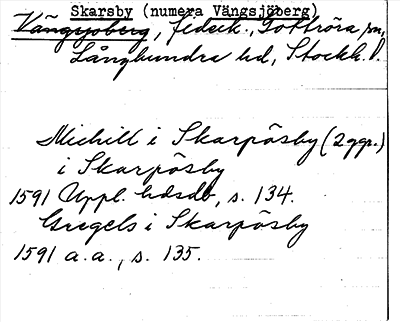 Skarsby (numera Vängsjöberg)
Vängsjöberg, fideik., Gottröra sn,
Långhundra hd, Stockh. l.
Michill i Skarpåsby (2 ggr.)
i Skarpåsby
1591 Uppl. hdsdb, s. 134.
Gregels i Skarpåsby
1591 a.a., s. 135.